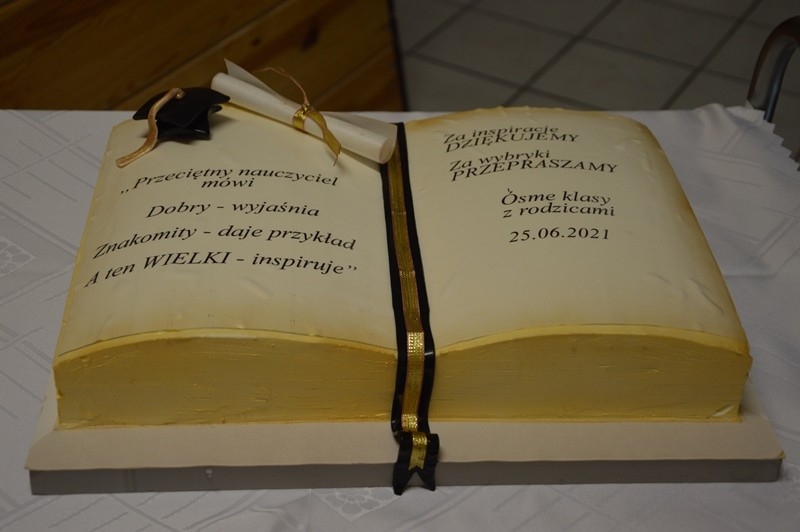 „Przeciętny nauczyciel
mówi
Dobry - wyjaśnia
Znakomity - daje przykład
A ten WIELKI - inspiruje”
Za inspirację
DZIĘKUJEMY
Za wybryki
PRZEPRASZAMY
Ósme klasy
z rodzicami
25.06.2021